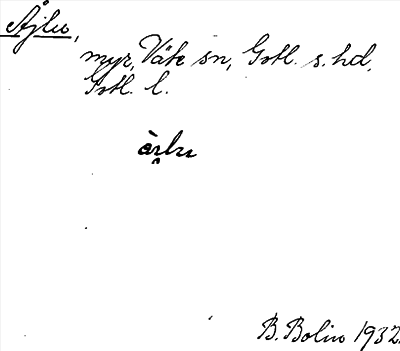 Åjlu,
myr, Väte sn, Gotl. s. hd,
Gotl. l.
B. Bolin 1932.